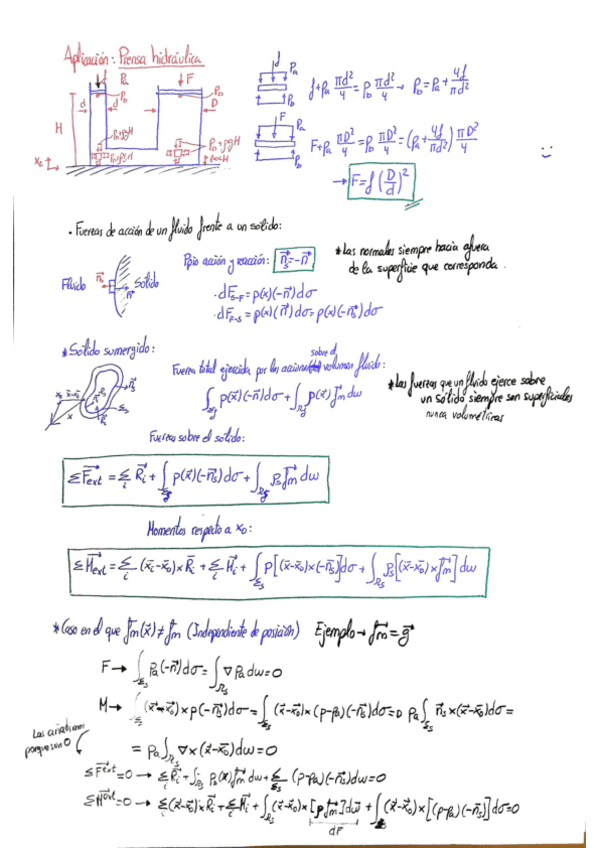 Aplicación: Prensa hidráulica
f Pa F
Pb Pb
d d D
H
Pb+ρgH Pb+ρgH
f Pa Pb
f+Pa πd²/4 = Pb πd²/4 → Pb = Pa + 4f/πd²
F Pa Pb
F+Pa πD²/4 = Pb πD²/4 = (Pa + 4f/πd²) πD²/4
→ F = f (D/d)²
· Fuerzas de acción de un fluido frente a un sólido:
Fluido Sólido
Ppio acción y reacción: n⃗s = -n⃗
* Las normales siempre hacia afuera
de la superficie que corresponda.
· dF S-F = p(x)(-n⃗)dσ
· dF F-S = p(x)(n⃗)dσ = p(x)(-n⃗s)dσ
* Sólido sumergido:
Fuerza total ejercida por las acciones sobre el volumen fluido:
∫Σf p(x⃗)(-n⃗)dσ + ∫Ωf ρ(x⃗) f⃗m dω
* Las fuerzas que un fluido ejerce sobre
un sólido siempre son superficiales
nunca volumétricas
Fuerza sobre el sólido:
ΣF⃗ext = Σi R⃗i + ∫Σf p(x⃗)(-n⃗s)dσ + ∫Ωs ρs f⃗m dω
Momentos respecto a x0:
ΣM⃗ext = Σi (x⃗i-x⃗0)×R⃗i + Σi M⃗i + ∫Σs p[(x⃗-x⃗0)×(-n⃗s)]dσ + ∫Ωs ρs[(x⃗-x⃗0)×f⃗m]dω
* Caso en el que f⃗m(x⃗) ≠ f⃗m (Independiente de posición) Ejemplo → f⃗m = g⃗
F → ∫Σs Pa(-n⃗)dσ = ∫Ωs ∇Pa dω = 0
M → ∫Σs (x⃗-x⃗0)×p(-n⃗s)dσ = ∫Σs (x⃗-x⃗0)×(p-pa)(-n⃗s)dσ = 0 pa∫Σs n⃗s×(x⃗-x⃗0)dσ =
Las añadimos
porque son 0
= pa∫Ωs ∇×(x⃗-x⃗0)dω = 0
ΣF⃗ext = 0 → Σi R⃗i + ∫Ωs ρs(x) f⃗m dω + ∫Σs (p-pa)(-n⃗s)dσ = 0
ΣM⃗ext = 0 → Σi (x⃗-x⃗0)×R⃗i + Σi M⃗i + ∫Ωs (x⃗-x⃗0)×[ρf⃗m]dω + ∫Σs (x⃗-x⃗0)×[(p-pa)(-n⃗s)]dσ = 0
dF